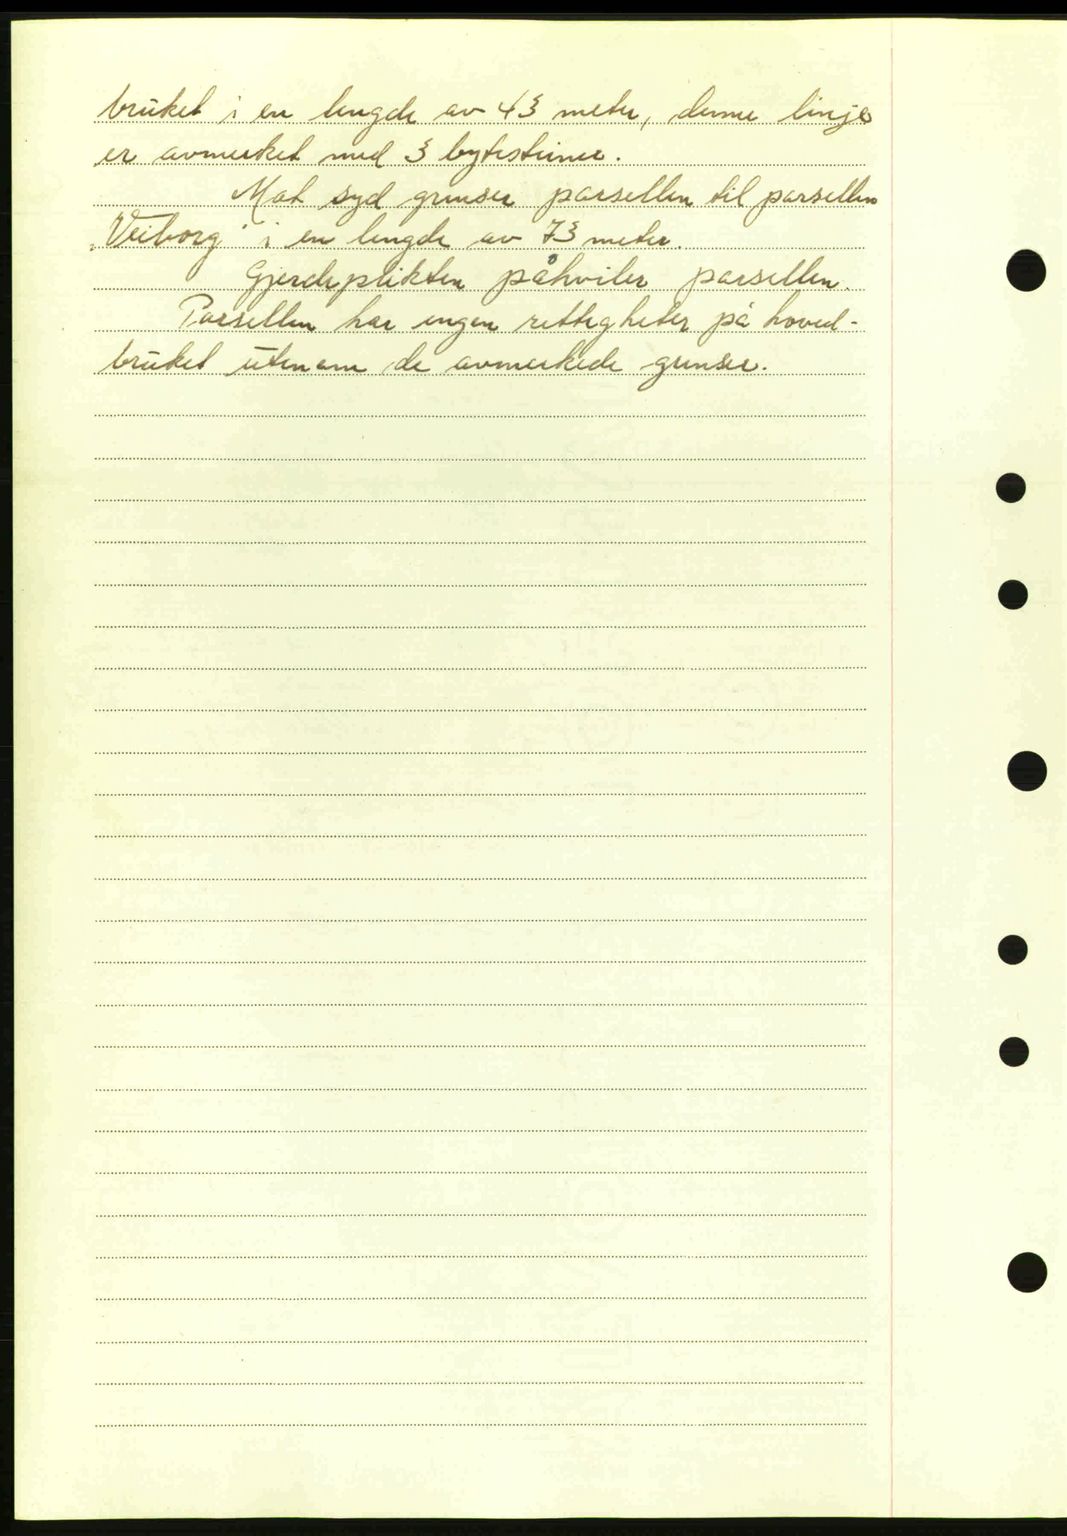 bruket i en lengde av 43 meter, denne linje
er avmerket med 3 bytesteiner.
Mot syd grenser parsellen til parsellen
„Veiborg" i en lengde av 73 meter.
Gjerdeplikten påhviler parsellen.
Parsellen har ingen rettigheter på hoved-
bruket utenom de avmerkede grenser.